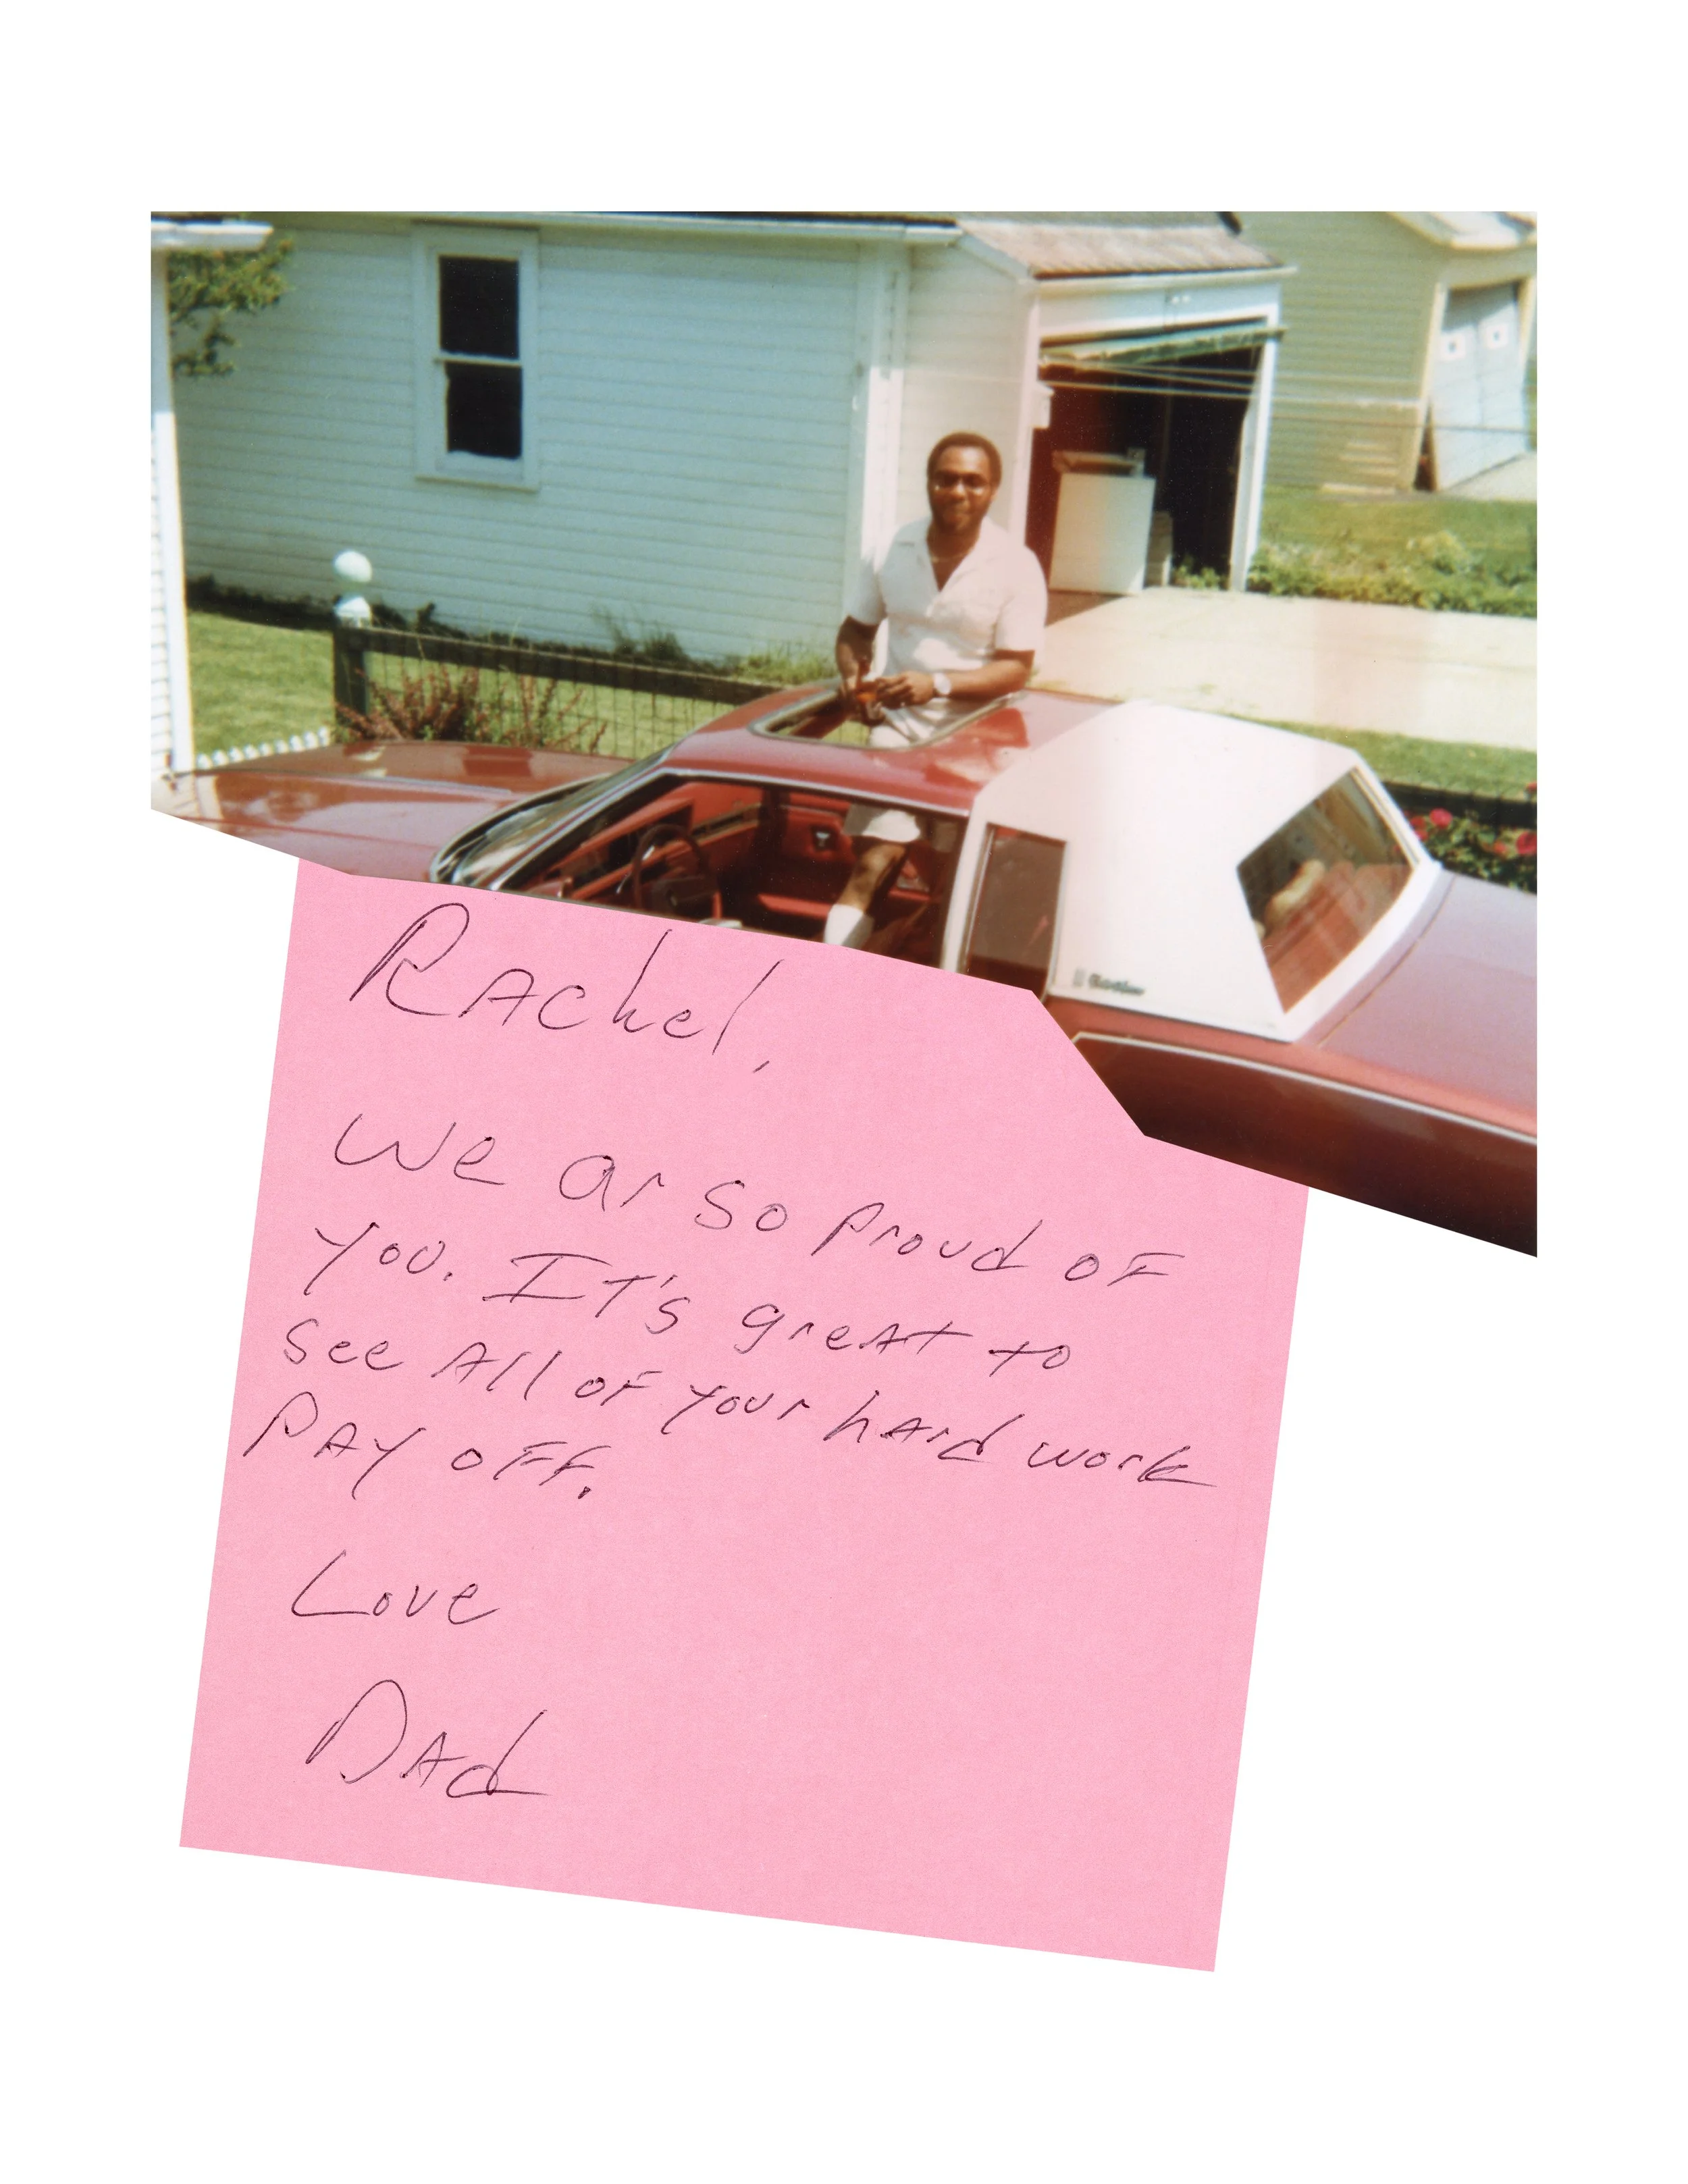 RAchel,
We ar so proud of
you. IT's greAt to
see All of your hArd work
PAY off.
Love
DAd